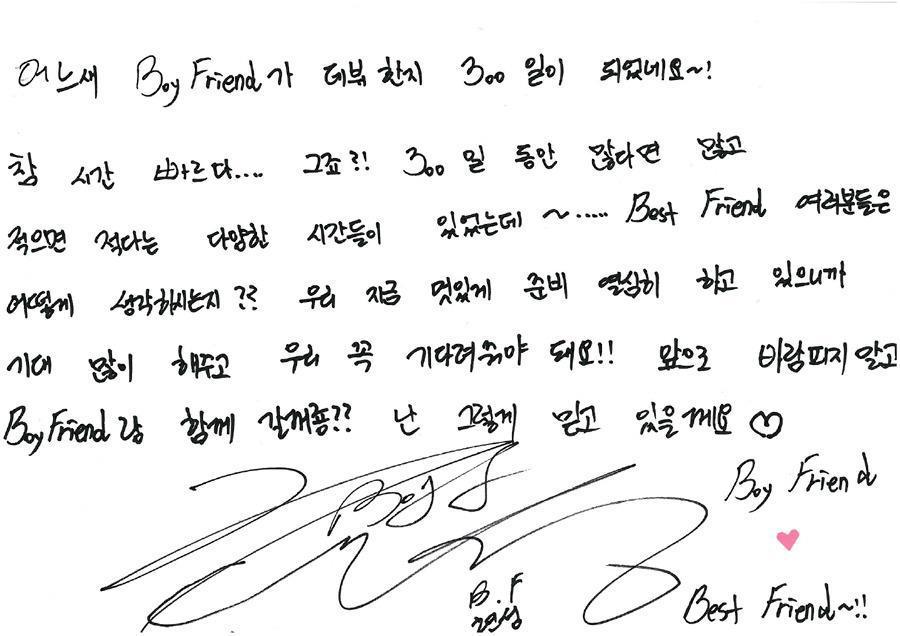 어느새 BoyFriend가 데뷔한지 300일이 되었네요~!
참 시간 빠르다.... 그죠?! 300일 동안 많다면 많고
적으면 적다는 다양한 시간들이 있었는데 ~..... Best Friend 여러분들은
어떻게 생각하시는지?? 우리 지금 멋있게 준비 열심히 하고 있으니까
기대 많이 해주고 우리 꼭 기다려줘야 돼요!! 앞으로 바람피지말고
BoyFriend랑 함께 갈꺼죵?? 난 그렇게 믿고 있을께요 ♡
Boy Friend
♥
Best Friend~!!
B.F
현성